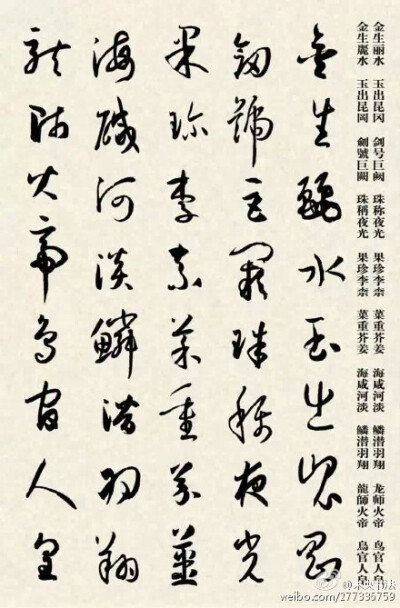 金生丽水 玉出昆冈 剑号巨阙 珠称夜光 果珍李柰 菜重芥姜 海咸河淡 鳞潜羽翔 龙师火帝 鸟官人皇
金生麗水 玉出昆岡 劍號巨闕 珠稱夜光 果珍李柰 菜重芥姜 海咸河淡 鱗潛羽翔 龍師火帝 鳥官人皇
金生麗水玉出崑岡
劍號巨闕珠稱夜光
果珍李柰菜重芥薑
海鹹河淡鱗潛羽翔
龍師火帝鳥官人皇
weibo.com/277336759